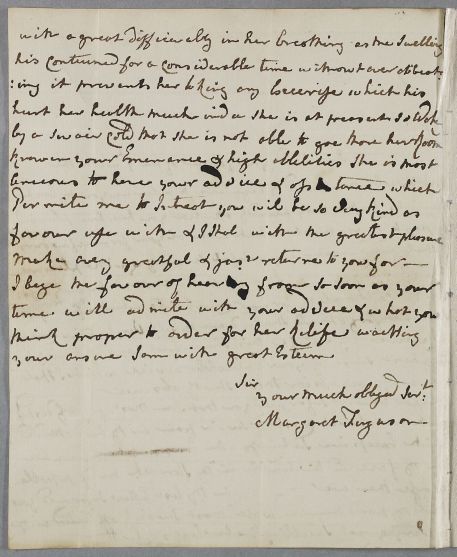 with a great difficualty in her breathing as the Swelling
his Contenued for a Considerable time without aver abeat=
:ing it prevents her taking any Excerise which his
hurt her helth much and a she is at presants so Wake
by a Savair Cold that she is not able to goe those her Room
known your Emenance & high Abilities she is most
ancious to have your advice & assistance which
Permite me to Intreat you will be so Very Kind as
favour us with & I Shal with the greatest pleasure
make avery greatful & just returne to you for —
I bege the favour of hearing from so soon as your
time will admite with your advice & what you
think proper to order for her Relife wachting
your ansure I am with great Esteem
Sir
your much obliged Servt:
Margaret Ferguson